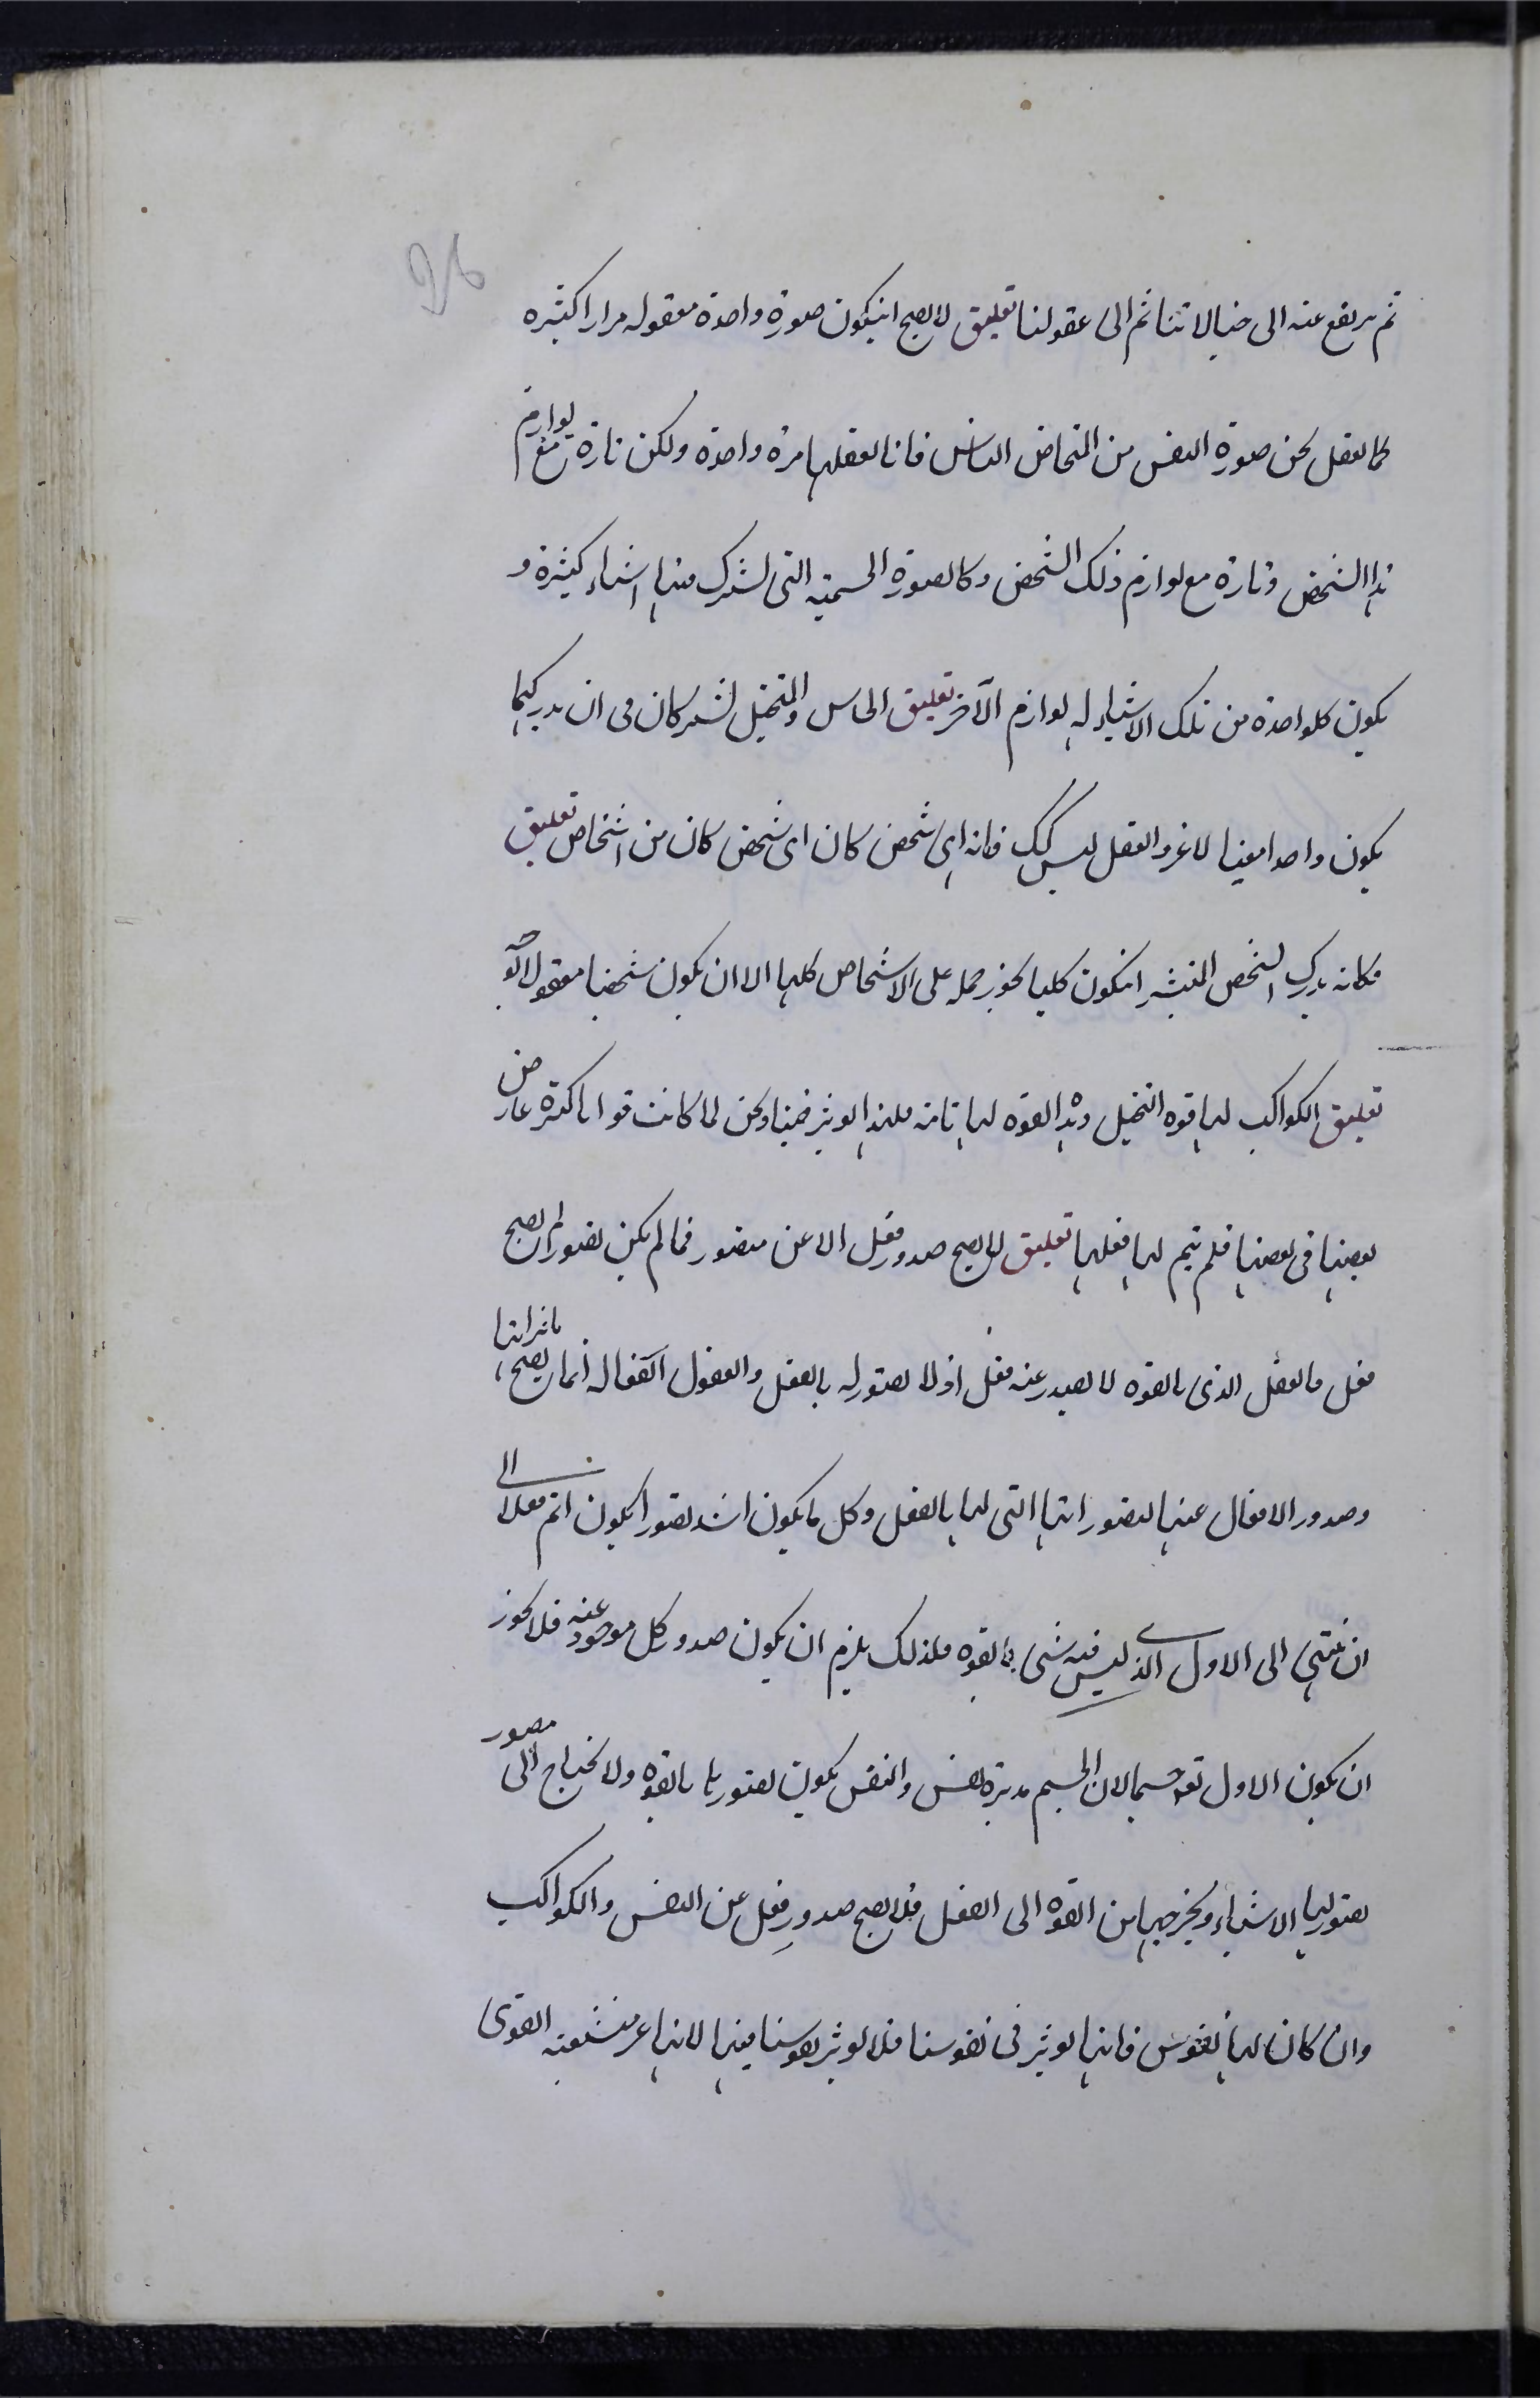 ثم يرتفع عنه الى خيالاتنا ثم الى عقولنا تعليق لا يصح انيكون صورة واحدة معقوله مرارا كثيره
كما نعقل نحن صورة النفس من اشخاص الناس فانا نعقلها مرة واحدة ولكن تارة مع لوازم
هذا الشخص وتارة مع لوازم ذلك الشخص وكالصورة الجسمية التى تشترك فيها اشياء كثيرة و
يكون كلواحدة من تلك الاشياء له لوازم الآخر تعليق الحاس والمتخيل يشتركان فى ان مدركهما
يكون واحدا معينا لا غير والعقل ليس كك فانه اى شخص كان اى شخص كان من اشخاص تعليق
فكانه يدرك الشخص المنتشر انيكون كليا يجوز حمله على الاشخاص كلها الا ان يكون شخصا معقولا
تعليق الكواكب لها قوه التخيل وهذه القوه لها تامة فلهذا يوثر فينا ونحن لما كانت قوانا كثره عارض
بعضها فى بعضها فلم يتم لها فعلها تعليق لا يصح صدور فعل الا عن متصور فما لم يكن تصور لم يصح
فعل فالعقل الذى بالقوه لا يصدر عنه فعل اذ لا تصور له بالفعل والعقول الفعاله انما يصح
وصدور الافعال عنها لتصوراتها التى لها بالفعل وكل ما يكون اشد تصورا يكون اتم فعلا الى
ان ينتهى الى الاول الذى ليس فيه شى بالقوه فلذلك يلزم ان يكون صدور كل موجود عنه فلا يجوز
ان يكون الاول تعه جسما لان الجسم مدبره نفس والنفس يكون تصورها بالقوه ولا تحتاج الى مصور
تصور لها الاشياء ويخرجها من القوه الى الفعل فلا يصح صدور فعل عن النفس والكواكب
وان كان لها نفوس فانها يوثر فى نفوسنا فلا يوثر نفوسنا فيها لانها غير منشعبه القوى